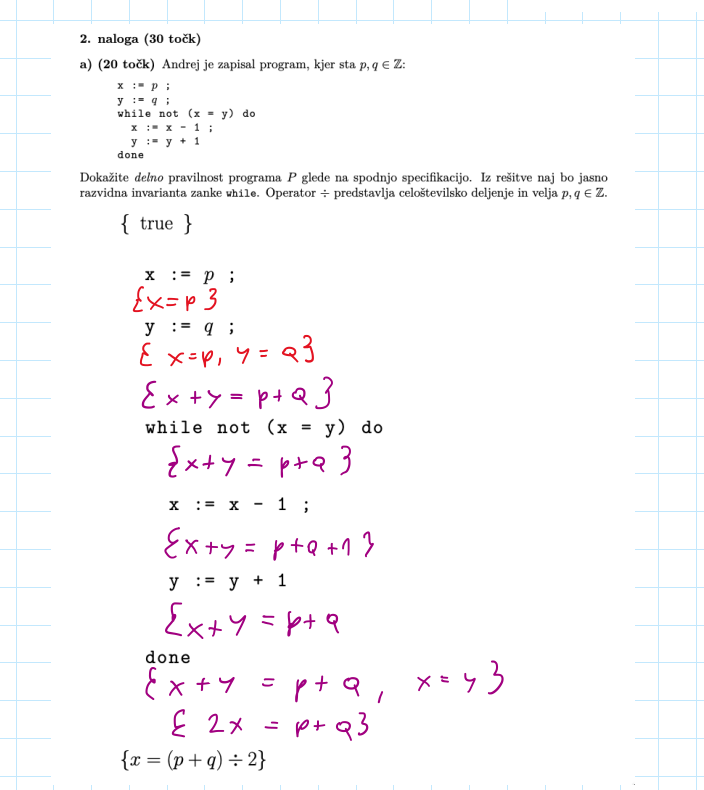 2. naloga (30 točk)
a) (20 točk) Andrej je zapisal program, kjer sta p, q ∈ ℤ:
x := p ;
y := q ;
while not (x = y) do
x := x - 1 ;
y := y + 1
done
Dokažite delno pravilnost programa P glede na spodnjo specifikacijo. Iz rešitve naj bo jasno
razvidna invarianta zanke while. Operator ÷ predstavlja celoštevilsko deljenje in velja p, q ∈ ℤ.
{ true }
x := p ;
{x=p}
y := q ;
{ x=p, y = q}
{x+y = p+q}
while not (x = y) do
{x+y = p+q}
x := x - 1 ;
{x+y = p+q+1}
y := y + 1
{x+y = p+q
done
{x+y = p+q, x=y}
{ 2x = p+q}
{x = (p + q) ÷ 2}